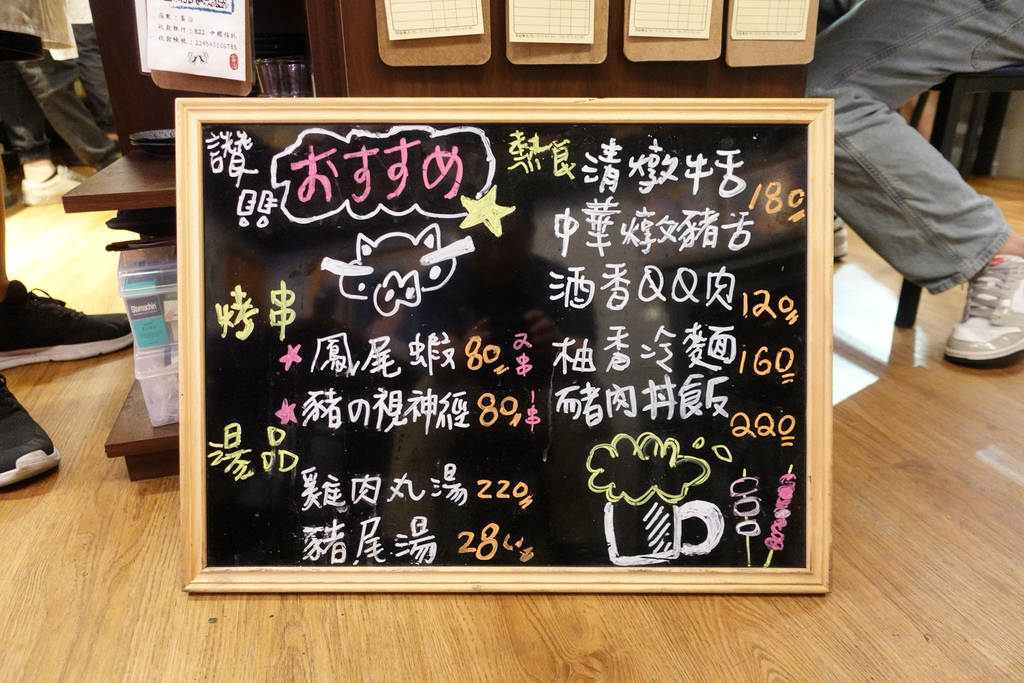 收款銀行:822 中國信託
讚!!
おすすめ
烤串
鳳尾蝦 80 2串
豬の視神經 80 1串
湯品
雞肉丸湯 220
豬尾湯 28
熱食
清燉牛舌 180
中華燉豬舌
酒香QQ肉 120
柚香冷麵 160
豬肉丼飯 220
Stomachin